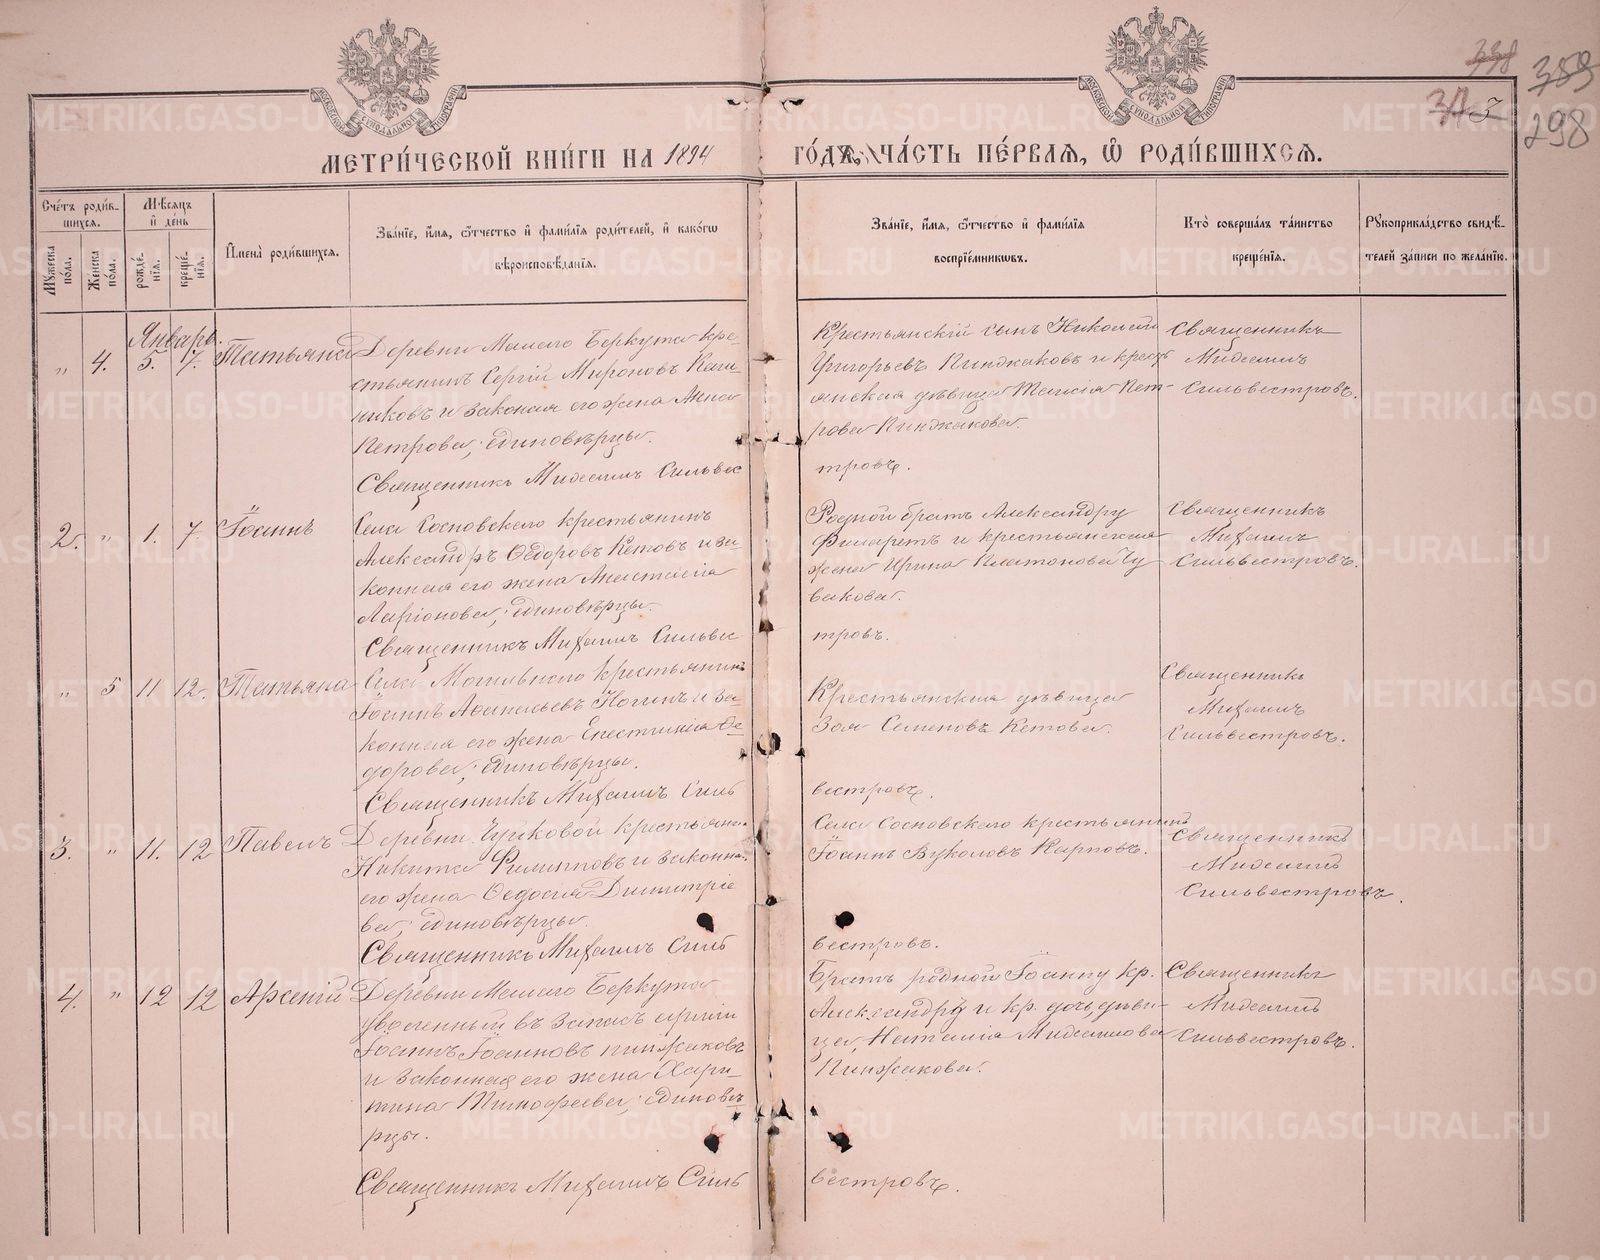 338
389
3
298
МЕТРИ́ЧЕСКОЙ КНИ́ГИ НА 1894 ГО́ДЪ, ЧА́СТЬ ПЕ́РВАЯ, Ѿ РОДИ́ВШИХСЯ.
Сче́тъ роди́в-
шихся.
Мꙋжеска
пола.
Женска
пола.
Мѣсяцъ
и҆ де́нь
рожде́-
нїя.
креще́-
нїя.
И҆мена̀ роди́вшихся.
Зва́нїе, и҆́мя, ѻ҆́тчество и҆ фами́лїя роди́телей, и҆ како́гѡ
вѣроисповѣ́данїя.
Зва́нїе, и҆́мя, ѻ҆́тчество и҆ фами́лїя
воспрїе́мникѡвъ.
Кто̀ соверша́лъ та́инство
креще́нїя.
Рꙋкоприкла́дство свидѣ́-
телей за́писи по жела́нїю.
Январь.
" 4. 5. 7. Татьяна
Деревни Малаго Беркута кре-
стьянинъ Сергій Мироновъ
никовъ и законная его жена Анна
Петрова; единовѣрцы.
Священникъ Михаилъ Сильвес
Крестьянскій сынъ Николай
Григорьевъ Пинджаковъ и крест
янская дѣвица Таисія Пет-
рова Пинджакова.
тровъ.
Священникъ
Михаилъ
Сильвестровъ.
2. " 1. 7. Іоаннъ
Села Сосновскаго крестьянинъ
Александръ Ѳедоровъ Кетовъ и за-
конная его жена Анастасія
Ларіонова; единовѣрцы.
Священникъ Михаилъ Сильвес
Родной братъ Александру
Филаретъ и крестьянская
жена Ирина Платонова Чу
вакова.
тровъ.
Священникъ
Михаилъ
Сильвестровъ.
" 5 11 12. Татьяна
Села Могильнаго крестьянинъ
Іоаннъ Аѳанасьевъ Ногинъ и за-
конная его жена Ѳе-
дорова; единовѣрцы.
Священникъ Михаилъ Силь
Крестьянская дѣвица
Зоя Семеновъ Кетова.
вестровъ.
Священникъ
Михаилъ
Сильвестровъ.
3. " 11. 12 Павелъ
Деревни Чуйковой крестьянин
Никита Филипповъ и законная
его жена Ѳедосія Димитріе
ва; единовѣрцы.
Священникъ Михаилъ Силь
Села Сосновскаго крестьянинъ
Іоаннъ Вуколовъ Карповъ.
вестровъ.
Священникъ
Михаилъ
Сильвестровъ.
4. " 12 12 Арсеній
Деревни Малаго Беркута
уволенный въ запасъ арміи
Іоаннъ Іоанновъ Пинжаковъ
и законная его жена Хари-
тина Тимофеева; единовѣ
рцы.
Священникъ Михаилъ Силь
Братъ родной Іоанну кр.
Александръ и кр. дочь дѣви-
ца, Наталія Михаилова
Пинжакова.
вестровъ.
Священникъ
Михаилъ
Сильвестровъ.
METRIKI.GASO-URAL.RU